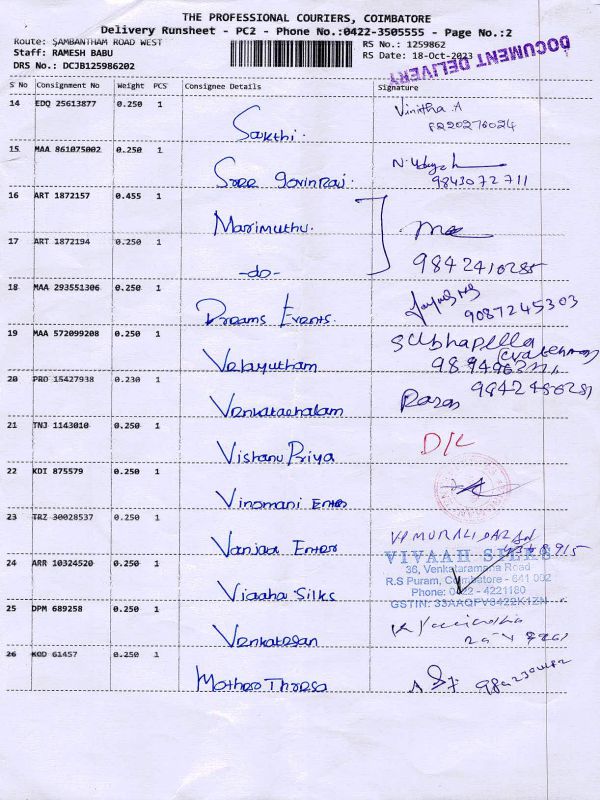 THE PROFESSIONAL COURIERS, COIMBATORE
Delivery Runsheet - PC2 - Phone No.:0422-3505555 - Page No.:2
Route: SAMBANTHAM ROAD WEST
RS No.: 1259862
Staff: RAMESH BABU
RS Date: 18-Oct-2023
DRS No.: DCJB125986202
DOCUMENT DELIVERY
S No Consignment No Weight PCS Consignee Details Signature
14 EDQ 25613877 0.250 1 Sakthi. Vinitha A
15 MAA 861075002 0.250 1 Sree Govinraj.
9843072711
16 ART 1872157 0.455 1 Marimuthu.
17 ART 1872194 0.250 1 -do- 9842410285
18 MAA 293551306 0.250 1 Dreams Events. 9087245303
19 MAA 572099208 0.250 1 Velayutham
20 PRO 15427938 0.230 1 Venkatachalam
21 TNJ 1143010 0.250 1 Vishanu Priya D/L
22 KDI 875579 0.250 1 Vinomani Enter
23 TRZ 30028537 0.250 1 Vanjaa Enter
VIVAAH SILKS
36, Venkataramana Road
R.S Puram, Coimbatore - 641 002
Phone: 0422 - 4221180
24 ARR 10324520 0.250 1 Viaaha Silks
25 DPM 689258 0.250 1 Venkatesan
26 KOD 61457 0.250 1 Mother Thresa